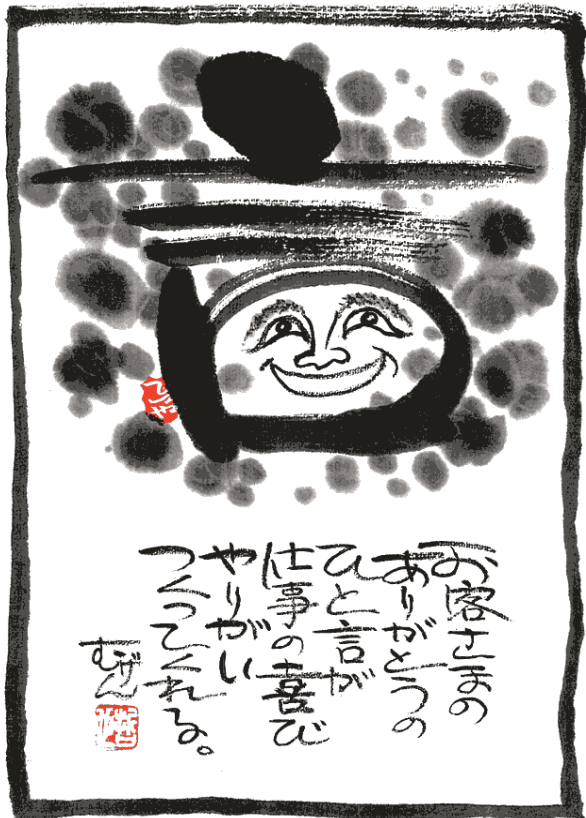 言
お客さまの
ありがとうの
ひと言が
仕事の喜び
やりがい
つくってくれる。
むげん